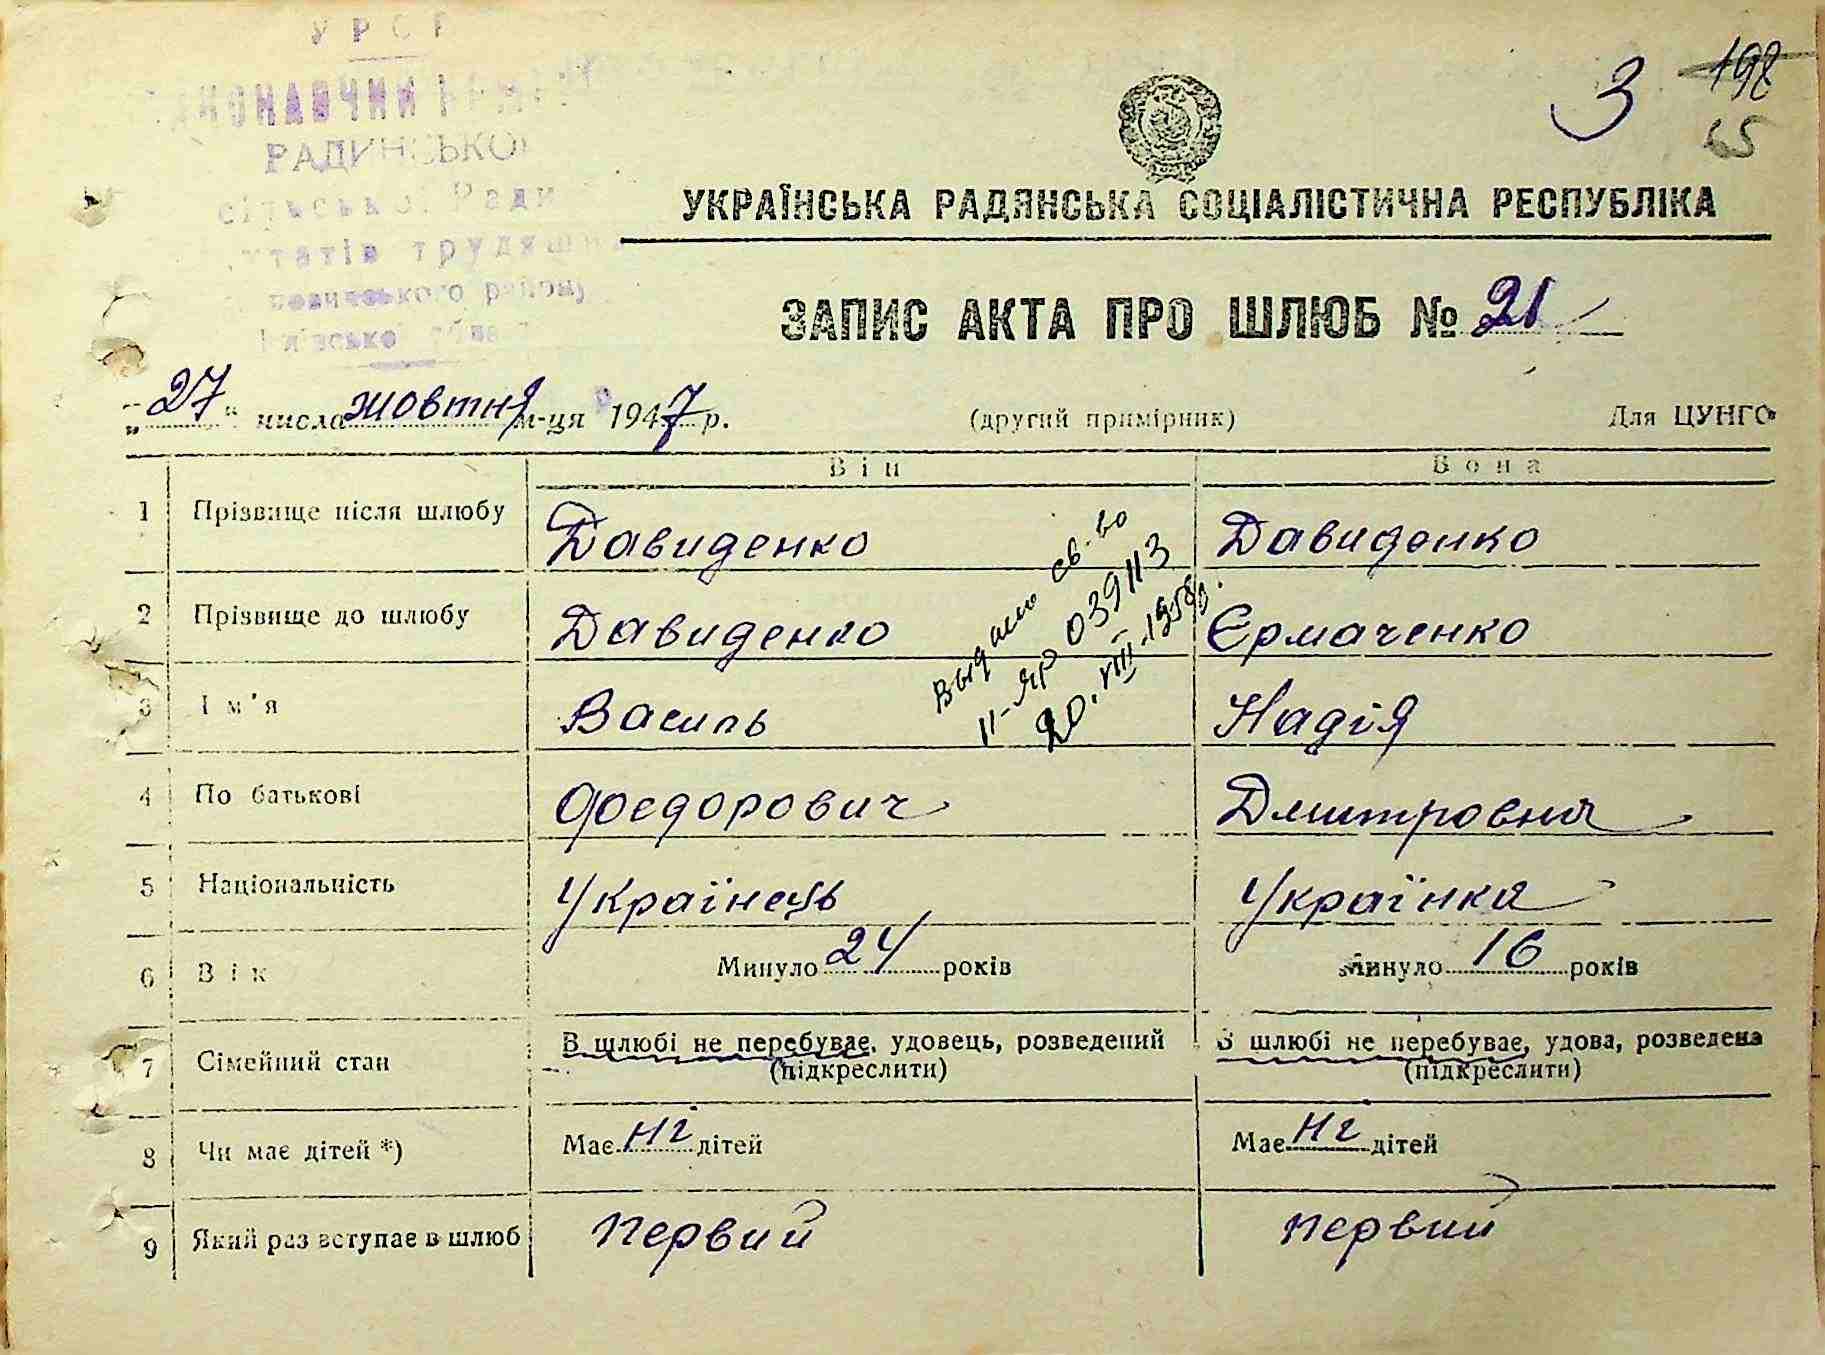 УРСР
ВИКОНАВЧИЙ КОМІТЕТ
РАДИНСЬКОЇ
сільської Ради
депутатів трудящих
району
Київської обл
3 198
65
УКРАЇНСЬКА РАДЯНСЬКА СОЦІАЛІСТИЧНА РЕСПУБЛІКА
ЗАПИС АКТА ПРО ШЛЮБ № 21
„27" числа жовтня м-ця 1947 р. (другий примірник) Для ЦУНГС
Він Вона
1 Прізвище після шлюбу Давиденко Давиденко
2 Прізвище до шлюбу Давиденко Єрмаченко
Выдано св-во
II-ЯР 039113
20.VIII-1958г.
3 Ім'я Василь Надія
4 По батькові Фоедорович Дмитровна
5 Національність Українець Українка
6 Вік Минуло 24 років Минуло 16 років
7 Сімейний стан В шлюбі не перебуває, удовець, розведений В шлюбі не перебуває, удова, розведена
(підкреслити) (підкреслити)
8 Чи має дітей *) Має ні дітей Має ні дітей
9 Який раз вступає в шлюб первий первий